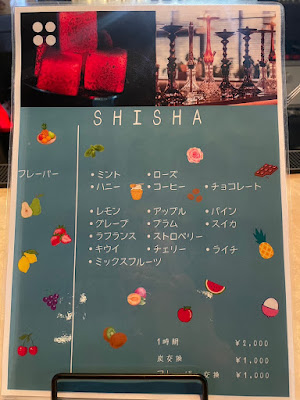 SHISHA
フレーバー
・ミント ・ローズ
・ハニー ・コーヒー ・チョコレート
・レモン ・アップル ・パイン
・グレープ ・プラム ・スイカ
・ラフランス ・ストロベリー
・キウイ ・チェリー ・ライチ
・ミックスフルーツ
1時間 ¥2,000
炭交換 ¥1,000
フレーバー交換 ¥1,000